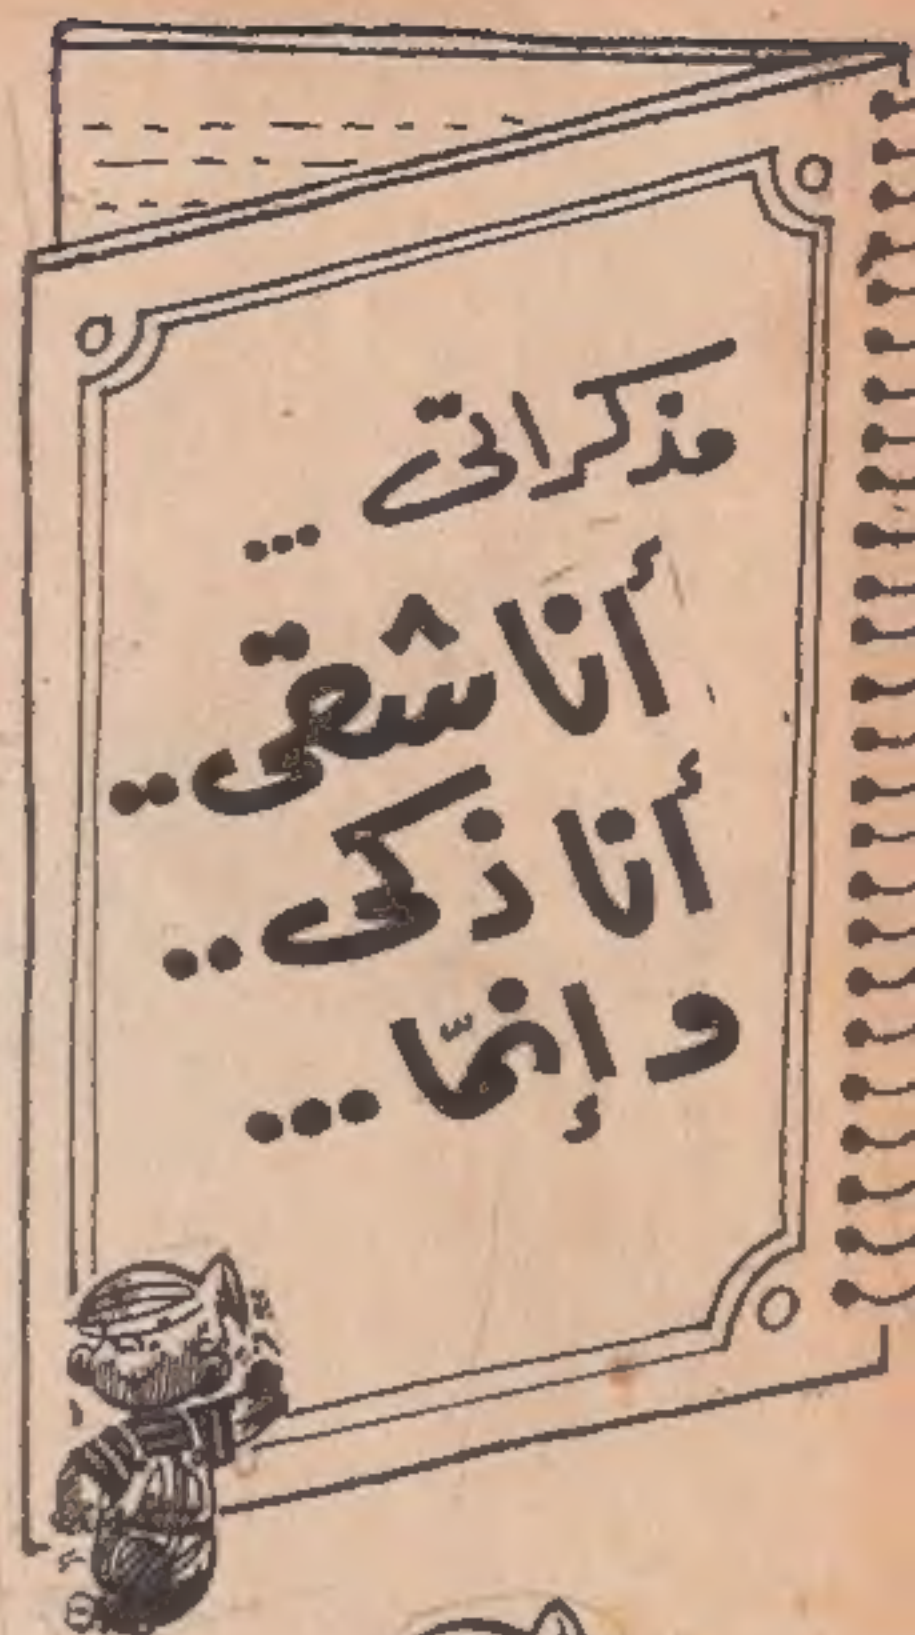 مذكراتى ...
أنا شقى ..
أنا ذكى ..
و إنمّا ...